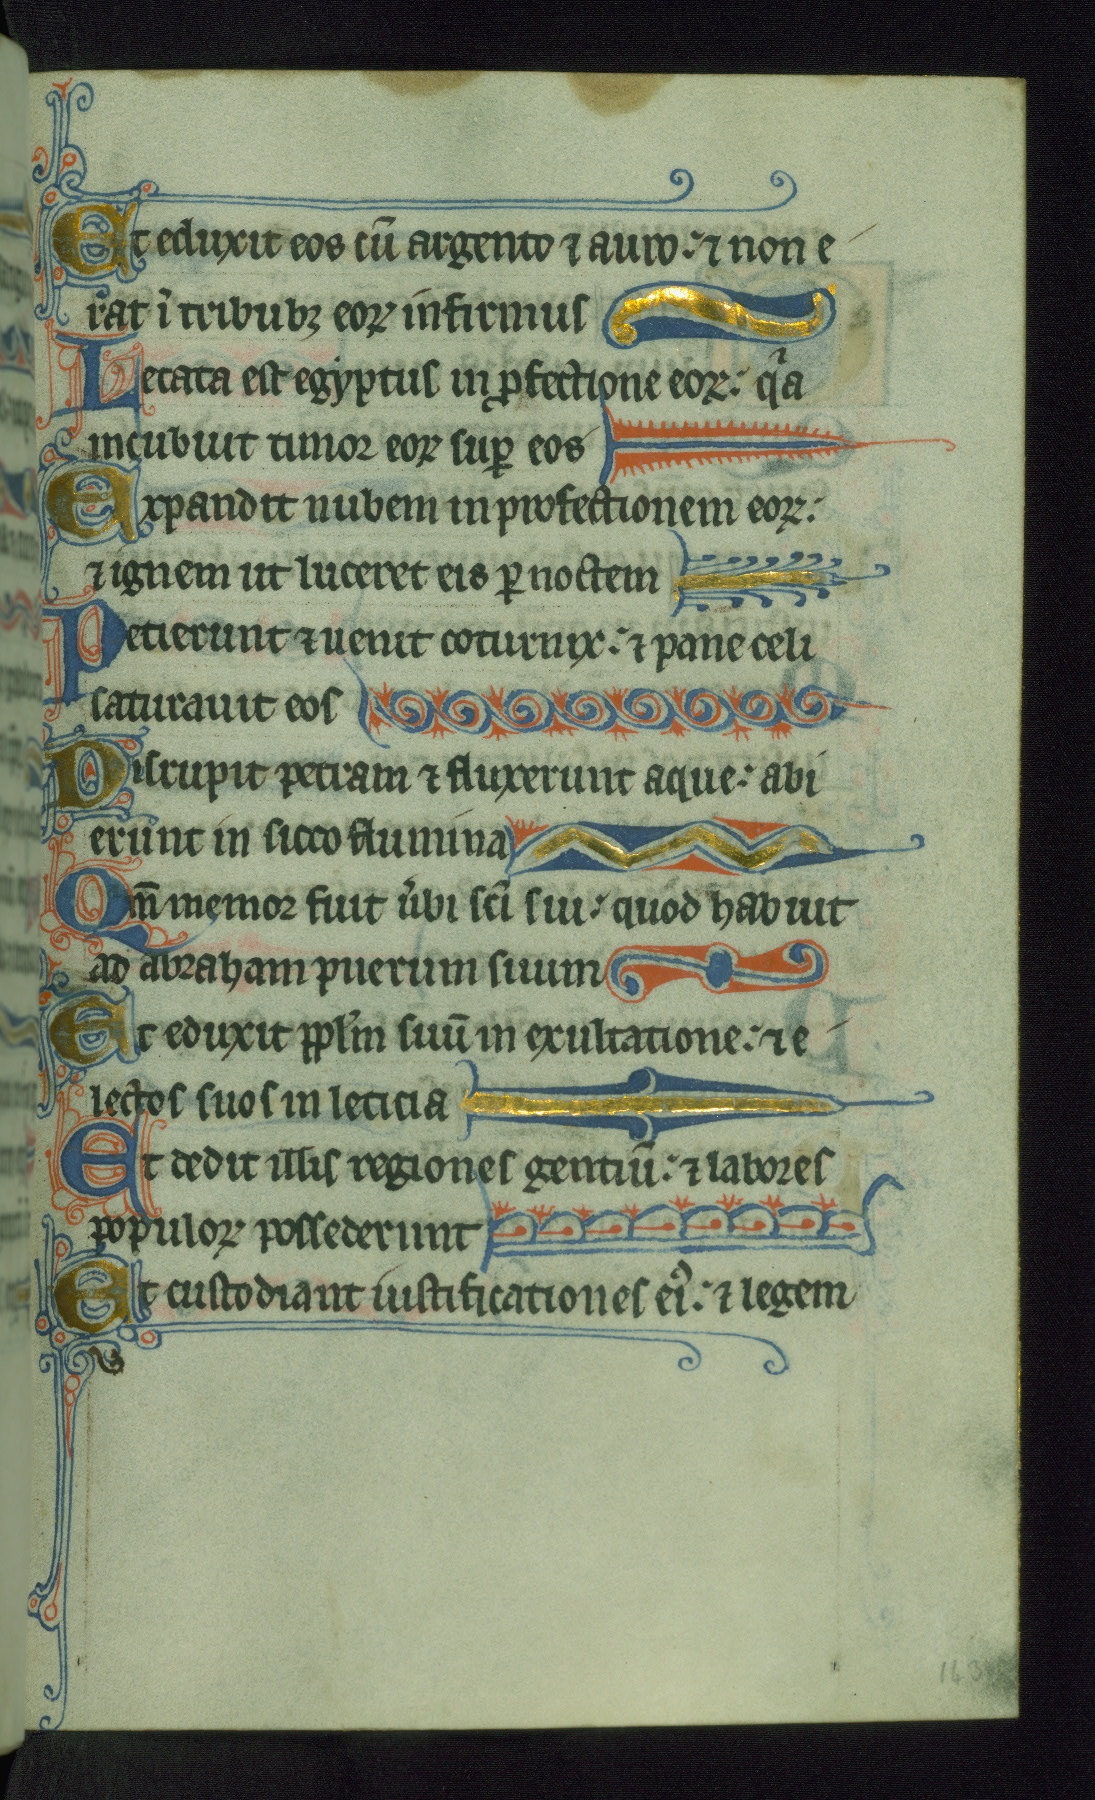 Et eduxit eos cū argento ⁊ auro: ⁊ non e
rat ī tribubꝫ eoꝝ infirmus
Letata est egyptus in ꝓfectione eoꝝ: qͥa
incubuit timor eoꝝ suꝑ eos
Expandit nubem in profectionem eoꝝ:
⁊ ignem ut luceret eis ꝑ noctem
Petierunt ⁊ uenit coturnix: ⁊ pane celi
saturauit eos
Disrupit petram ⁊ fluxerunt aque: abi
erunt in sicco flumina
Qm̄ memor fuit u̾bi sc̄i sui: quod habuit
ad abraham puerum suum
Et eduxit pp̄lm suū in exultatione: ⁊ e
lectos suos in leticia
Et dedit illis regiones gentiū: ⁊ labores
populoꝝ possederunt
Et custodiant iustificationes eiꝰ: ⁊ legem
143